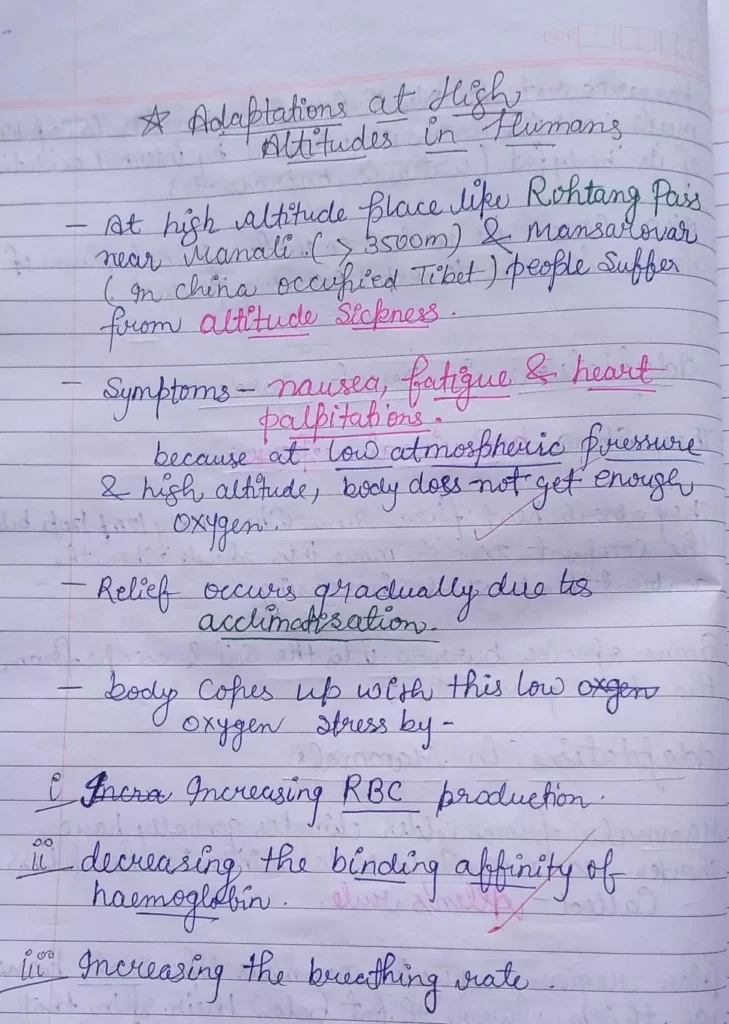 ☆ Adaptations at High
Altitudes in Humans
- At high altitude place like Rohtang Pass
near Manali (> 3500m) & Mansarovar
(in china occupied Tibet) people suffer
from altitude sickness.
- Symptoms - nausea, fatigue & heart
palpitations.
because at low atmospheric pressure
& high altitude, body does not get enough
oxygen.
- Relief occurs gradually due to
acclimatisation.
- body copes up with this low oxgen
oxygen stress by -
i Incra Increasing RBC production.
ii decreasing the binding affinity of
haemoglobin.
iii Increasing the breathing rate.